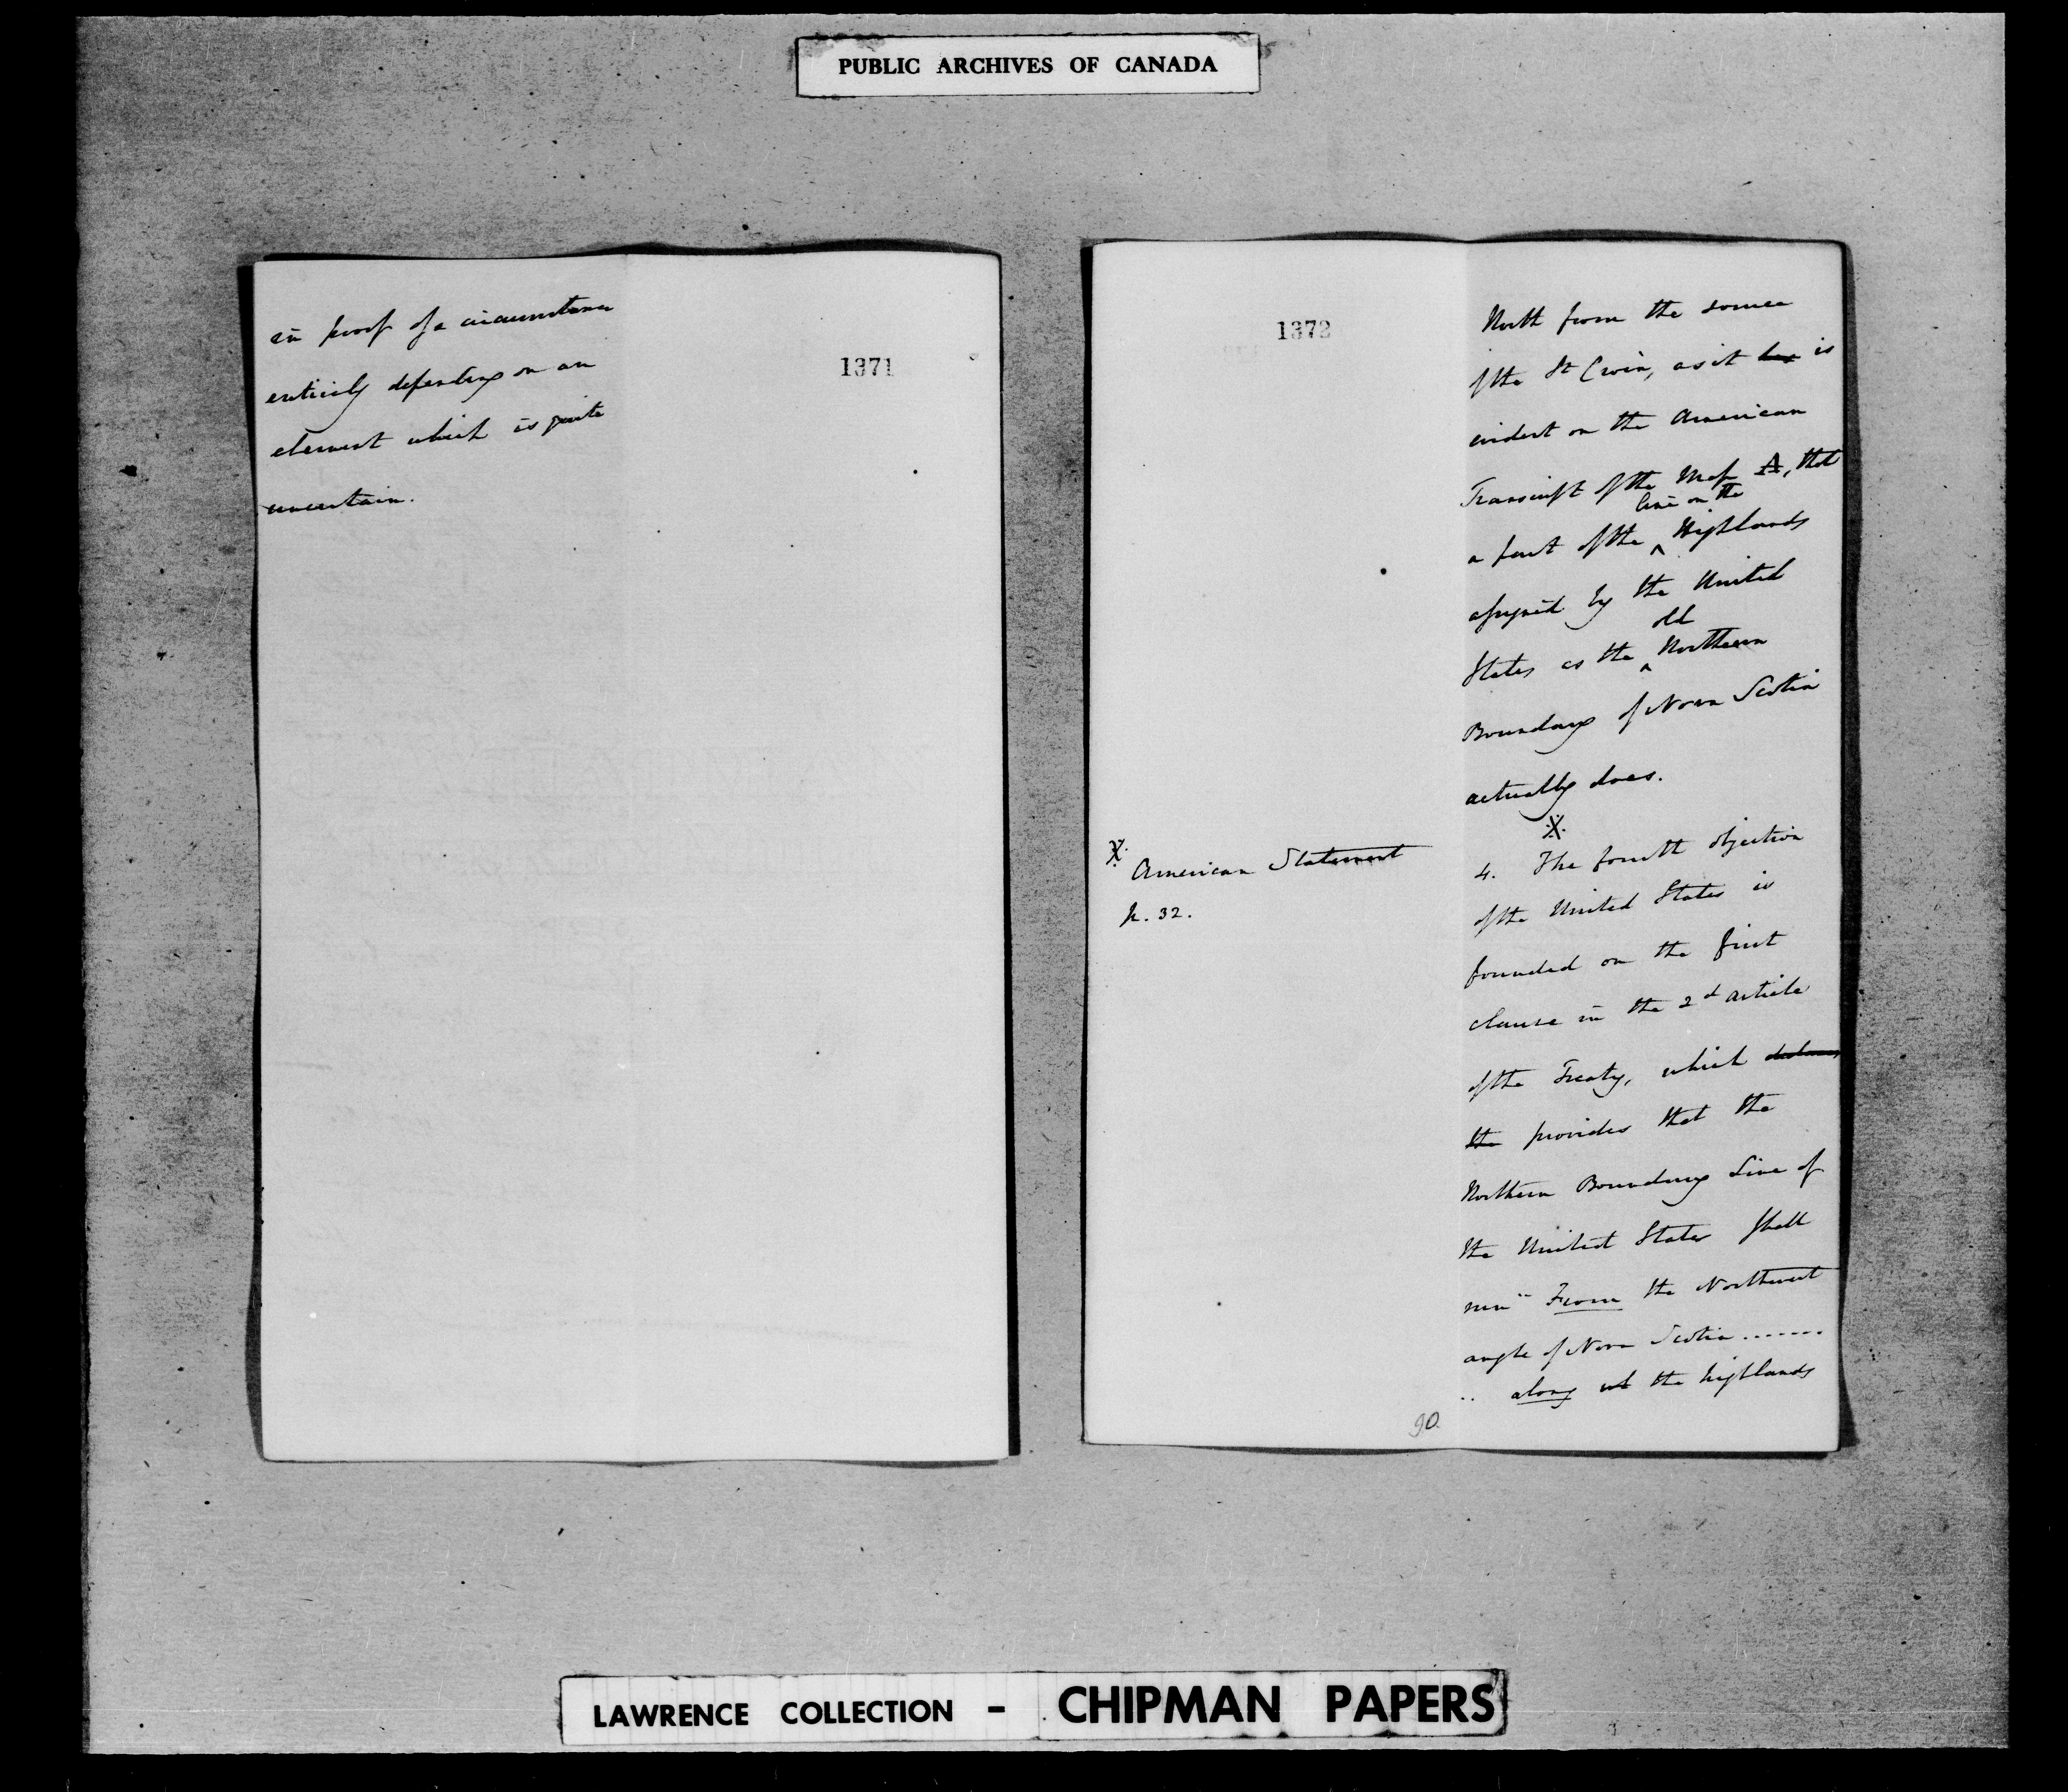 PUBLIC ARCHIVES OF CANADA
in proof of a circumstance
entirely depending on an
element which is quite
uncertain.
1371
1372
North from the source
of the St Croix, as it has is
evident on the American
Transcript of the Map A, that
line on the
a part of the ^ Highlands
assigned by the United
old
States as the ^ Northern
Boundary of Nova Scotia
actually does.
X
4. The fourth objection
of the United States is
founded on the first
clause in the 2d Article
of the Treaty, which declares
the provides that the
Northern Boundary Line of
the United States shall
run " From the Northwest
angle of Nova Scotia .......
.. along the highlands
X
American Statement
p. 32.
90.
LAWRENCE COLLECTION - CHIPMAN PAPERS